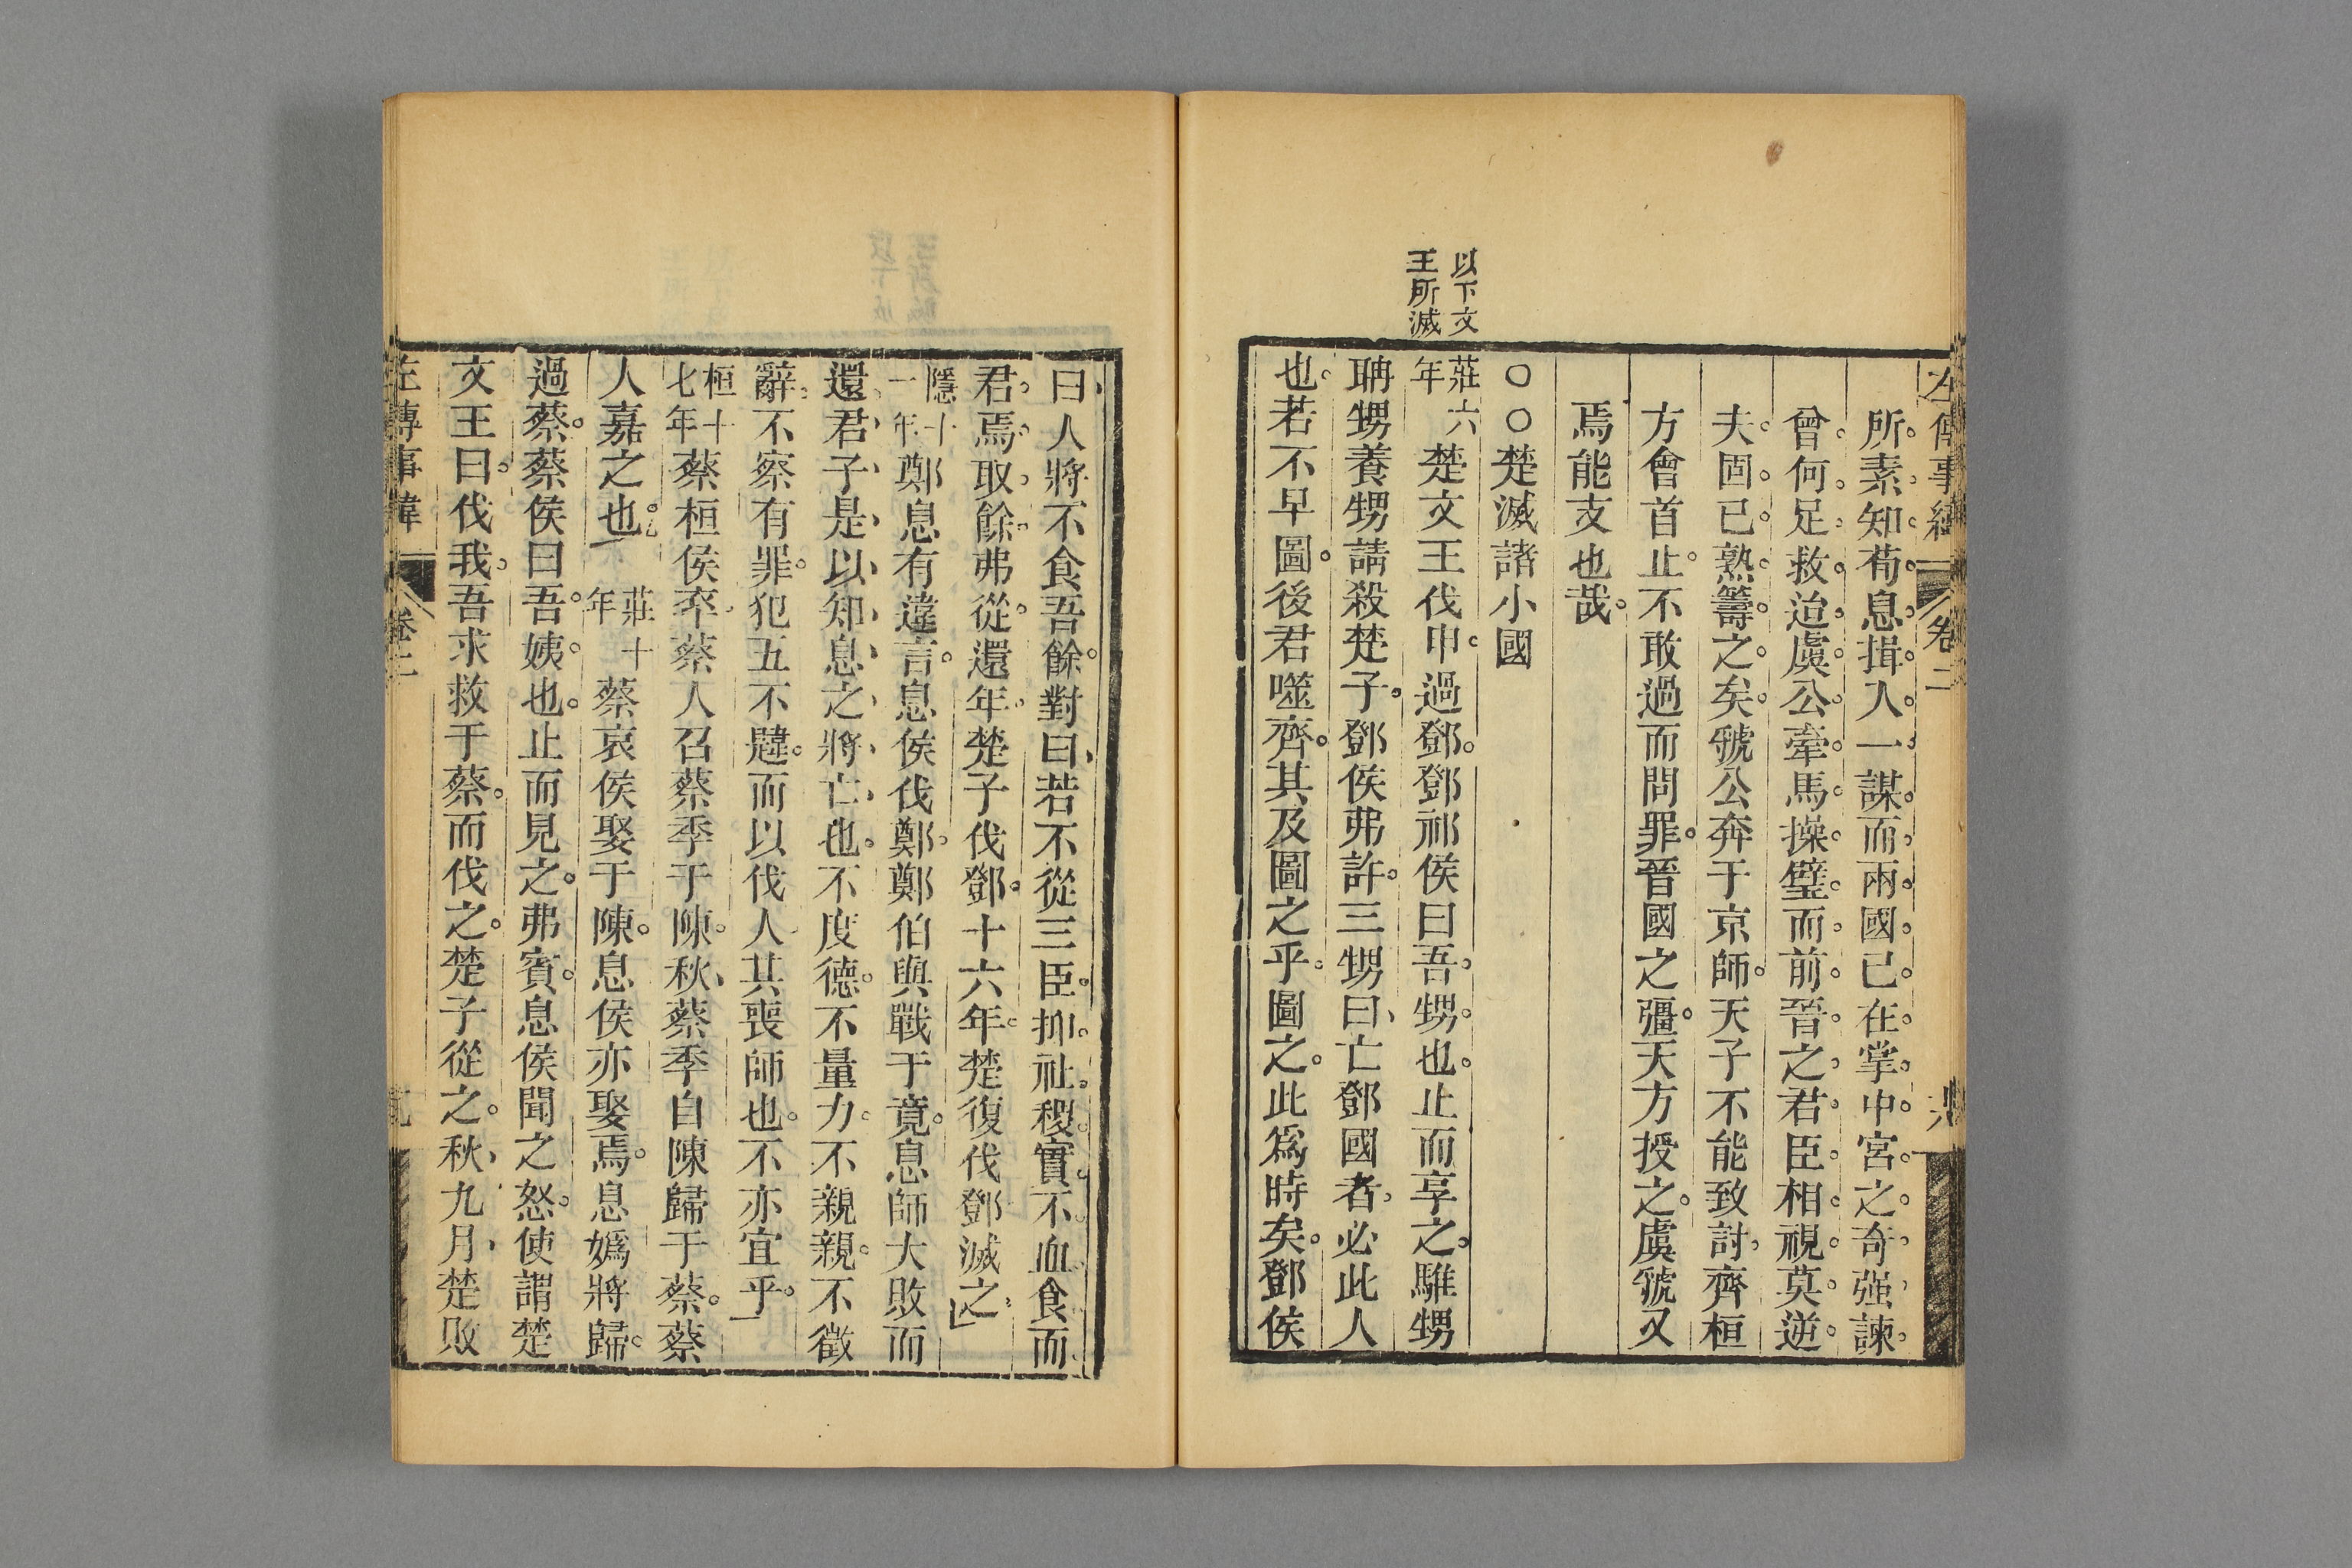 左傳事緯
卷二
所素知荀息揖入一謀而兩國已在掌中宮之奇强諫
曾何足救迨虞公牽馬操璧而前晉之君臣相視莫逆
夫固已熟籌之矣虢公奔于京師天子不能致討齊桓
方會首止不敢過而問罪晉國之彊天方授之虞虢又
焉能支也哉
○○楚滅諸小國
以下文
王所滅
莊六年楚文王伐申過鄧鄧祁侯曰吾甥也止而享之騅甥
聃甥養甥請殺楚子鄧侯弗許三甥曰亡鄧國者必此人
也若不早圖後君噬齊其及圖之乎圖之此爲時矣鄧侯
曰人將不食吾餘對曰若不從三臣抑社稷實不血食而
君焉取餘弗從還年楚子伐鄧十六年楚復伐鄧滅之
隱十一年鄭息有違言息侯伐鄭鄭伯與戰于竟息師大敗而
還君子是以知息之將亡也不度德不量力不親親不徵
辭不察有罪犯五不韙而以伐人其喪師也不亦宜乎
桓十七年蔡桓侯卒蔡人召蔡季于陳秋蔡季自陳歸于蔡蔡
人嘉之也莊十年蔡哀侯娶于陳息侯亦娶焉息嬀將歸
過蔡蔡侯曰吾姨也止而見之弗賓息侯聞之怒使謂楚
文王曰伐我吾求救于蔡而伐之楚子從之秋九月楚敗
左傳事緯
卷二